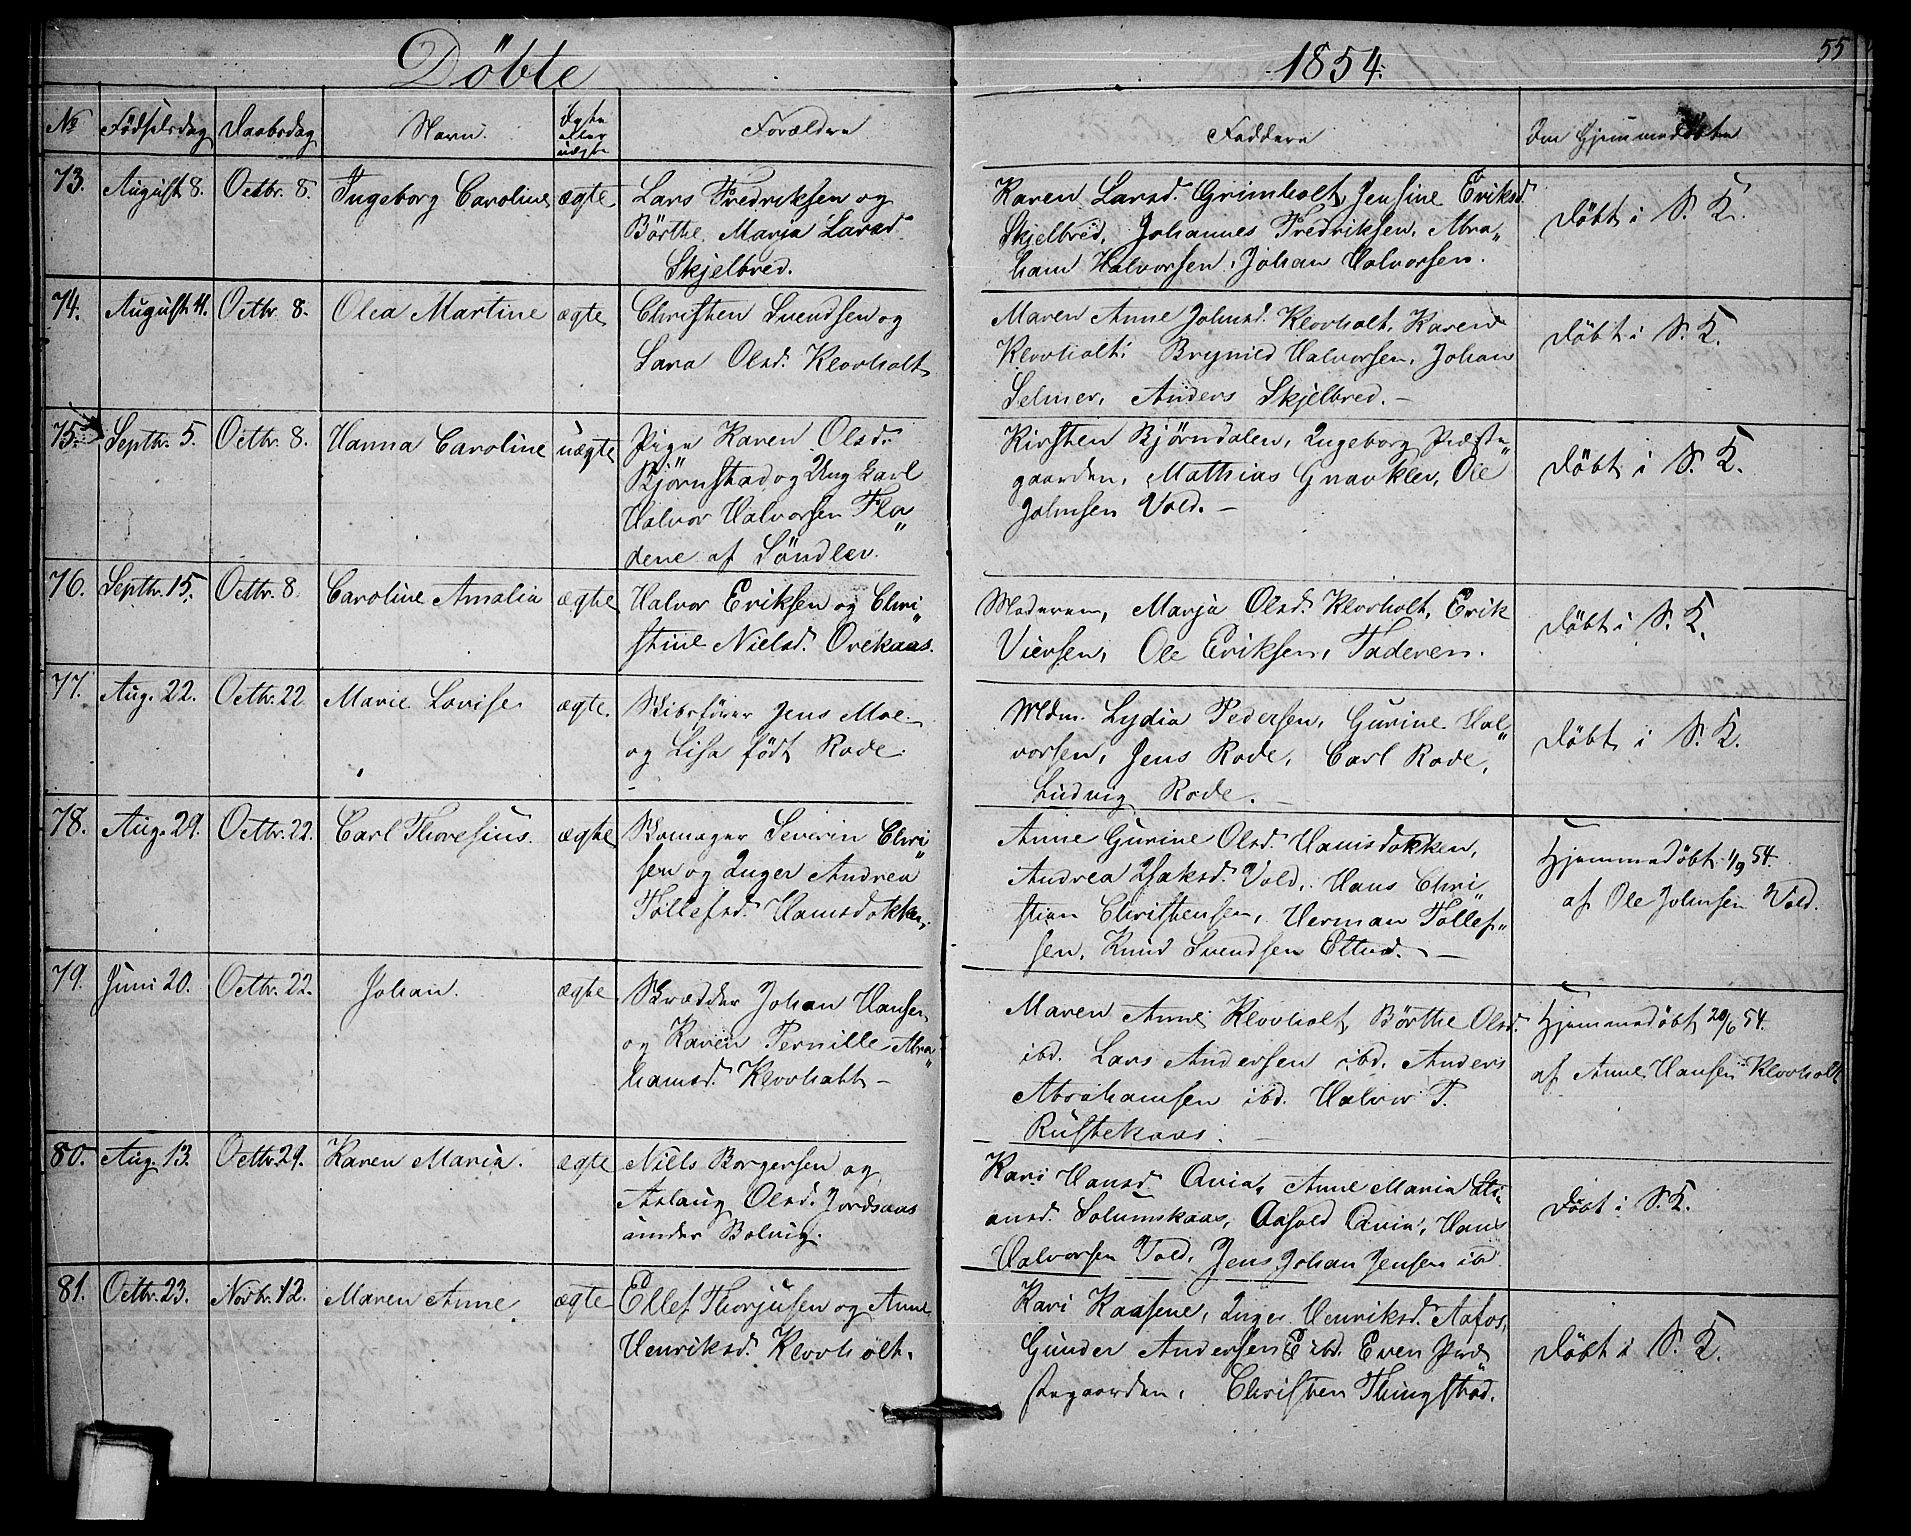 Döbte
1854.
55
No Födselsdag Daabsdag Navn. Ægte eller uægte Forældre Faddere Om Hjemmedöbte
73. August 8. Octbr. 8. Ingeborg Caroline ægte
Lars Fredriksen og
Börthe Marja Larsd.
Skjelbred.
Karen Larsd. Grimholt, Jensine Eriksd.
Skjelbred, Johannes Fredriksen, Abra„
ham Halvorsen, Johan Halvorsen.
Döbt i S. K.
74. August 11. Octbr. 8. Olea Martine ægte
Christen Svendsen og
Sara Olsd. Klovholt
Maren Anne Johnsd. Klovholt, Karen
Klovholt, Brynild Halvorsen, Johan
Selmer, Anders Skjelbred. —
Döbt i S. K.
75. Septbr. 5. Octbr. 8. Hanna Caroline uægte
Pige Karen Olsd.
Björnstad og Ung karl
Halvor Halvorsen Fla„
dene af Söndlev.
Kirsten Björndalen, Ingeborg Præste„
gaarden, Mathias Gravklev, Ole
Johnsen Vold. —
Döbt i S. K.
76. Septbr. 15. Octbr. 8. Caroline Amalia ægte
Halvor Eriksen og Chri„
stine Nielsd. Orekaas.
Moderen, Marja Olsd. Klovholt, Erik
Viersen, Ole Eriksen, Faderen.
Döbt i S. K.
77. Aug. 22. Octbr. 22 Marie Lovise ægte.
Skibsförer Jens Moe
og Lisa födt Rode.
Mdm. Lydia Pedersen, Gurine Hal„
vorsen, Jens Rode, Carl Rode,
Ludvig Rode. —
Döbt i S. K.
78. Aug. 29. Octbr. 22. Carl Thoresius. ægte
Skomager Severin Chri„
sen og Inger Andrea
Tollefsd. Hansdokken.
Anne Gurine Olsd. Hansdokken,
Andrea Isaksd. Vold, Hans Chri„
stian Christensen, Herman Tollef„
sen, Knud Svendsen Eltved. —
Hjemmedöbt 1/9 54.
af Ole Johnsen Vold.
79. Juni 20. Octbr. 22. Johan. ægte
Skrædder Johan Hansen
og Karen Pernille Abra„
hamsd. Klovholt —
Maren Anne Klovholt, Börthe Olsd.
ibd. Lars Andersen ibd. Anders
Abrahamsen ibd. Halvor P.
Rustekaas. —
Hjemmedöbt 20/6 54.
af Anne Hansen Klovholt
80. Aug. 13. Octbr. 29. Karen Maria. ægte
Niels Borgersen og
Aslaug Olsd. Jordsaas
under Bolvig.
Kari Hansd. Qvia, Anne Maria
ansd. Solumskaas, Aasold Qvia, Hans
Halvorsen Vold, Jens Johan Jensen ib
Döbt i S. K.
81. Octbr. 23. Novbr. 12. Maren Anne ægte
Ellef Thorjusen og Anne
Henriksd. Klovholt.
Kari Kaasene, Inger Henriksd. Aafos,
Gunder Andersen ibd. Even Præ„
stegaarden, Christen Thingstad.
Döbt i S. K.